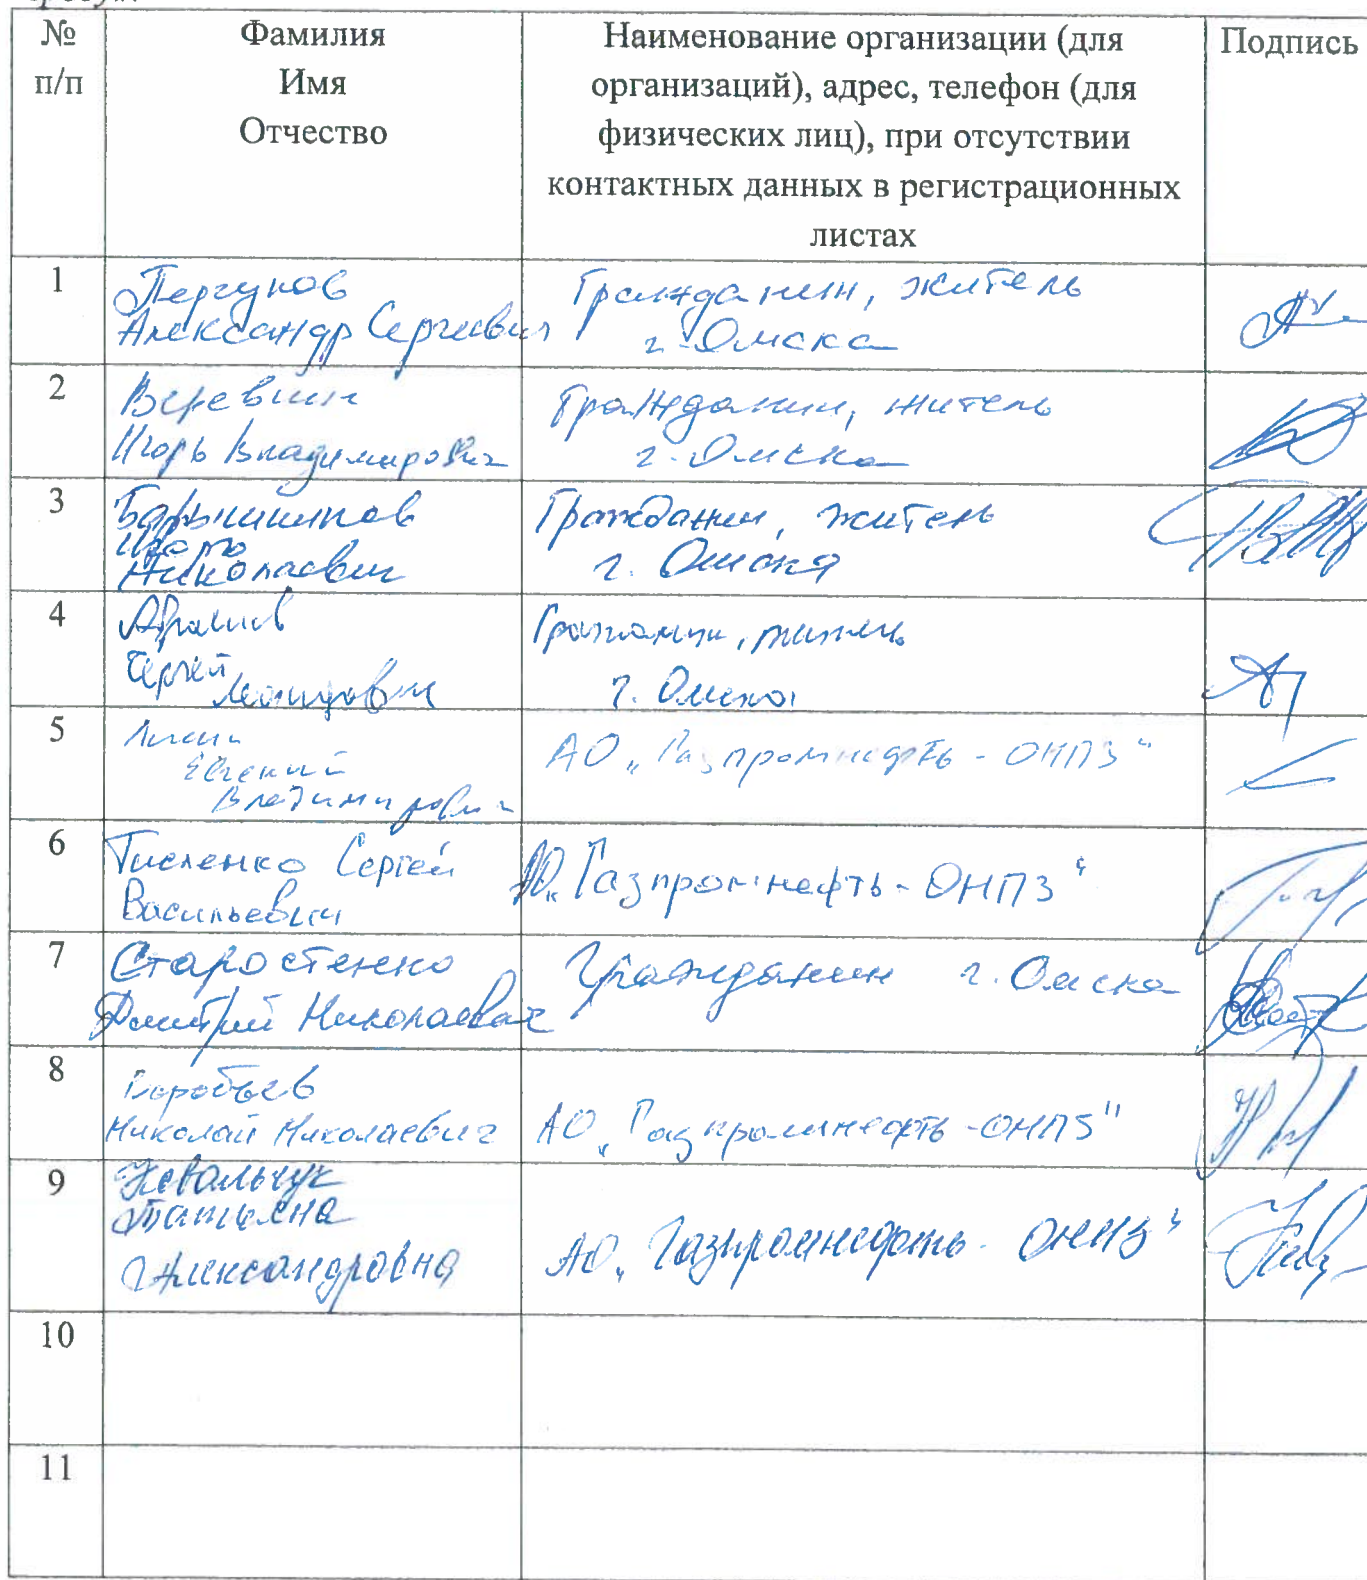 № п/п
Фамилия
Имя
Отчество
Наименование организации (для
организаций), адрес, телефон (для
физических лиц), при отсутствии
контактных данных в регистрационных
листах
Подпись
1
Пергунов
Александр Сергеевич
Гражданин, житель
г. Омска
2
Веревкин
Игорь Владимирович
Гражданин, житель
г. Омска
3
Барышников
Игорь
Николаевич
Гражданин, житель
г. Омска
4
Сергей
Гражданин, житель
г. Омска
5
Евгений
Владимирович
АО „Газпромнефть - ОНПЗ“
6
Тисленко Сергей
Васильевич
АО „Газпромнефть - ОНПЗ“
7
Старостенко
Дмитрий Николаевич
Гражданин г. Омска
8
Воробьев
Николай Николаевич
АО „Газпромнефть - ОНПЗ"
9
Ковальчук
Татьяна
Александровна
АО „Газпромнефть - ОНПЗ“
10
11